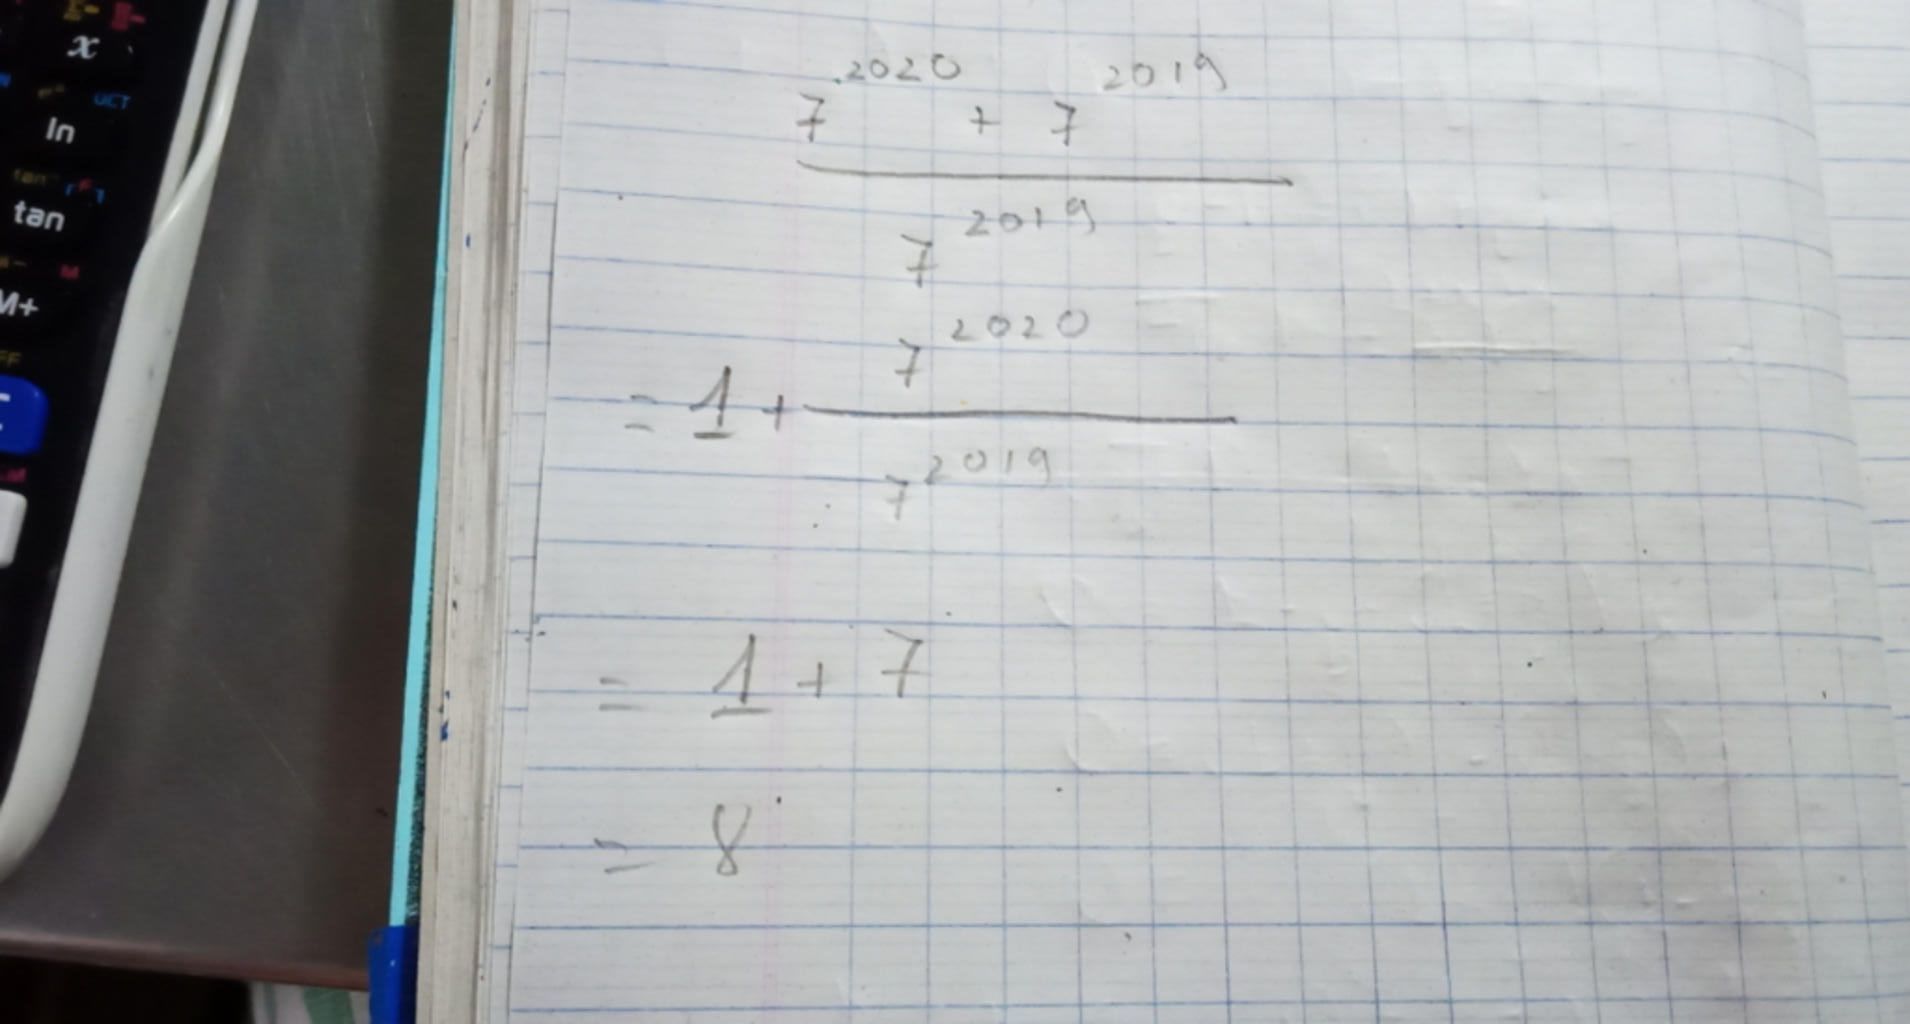 x
OCT
ln
tan
M
M+
7^2020 + 7^2019
7^2019
7^2020
= 1 +
7^2019
= 1 + 7
= 8